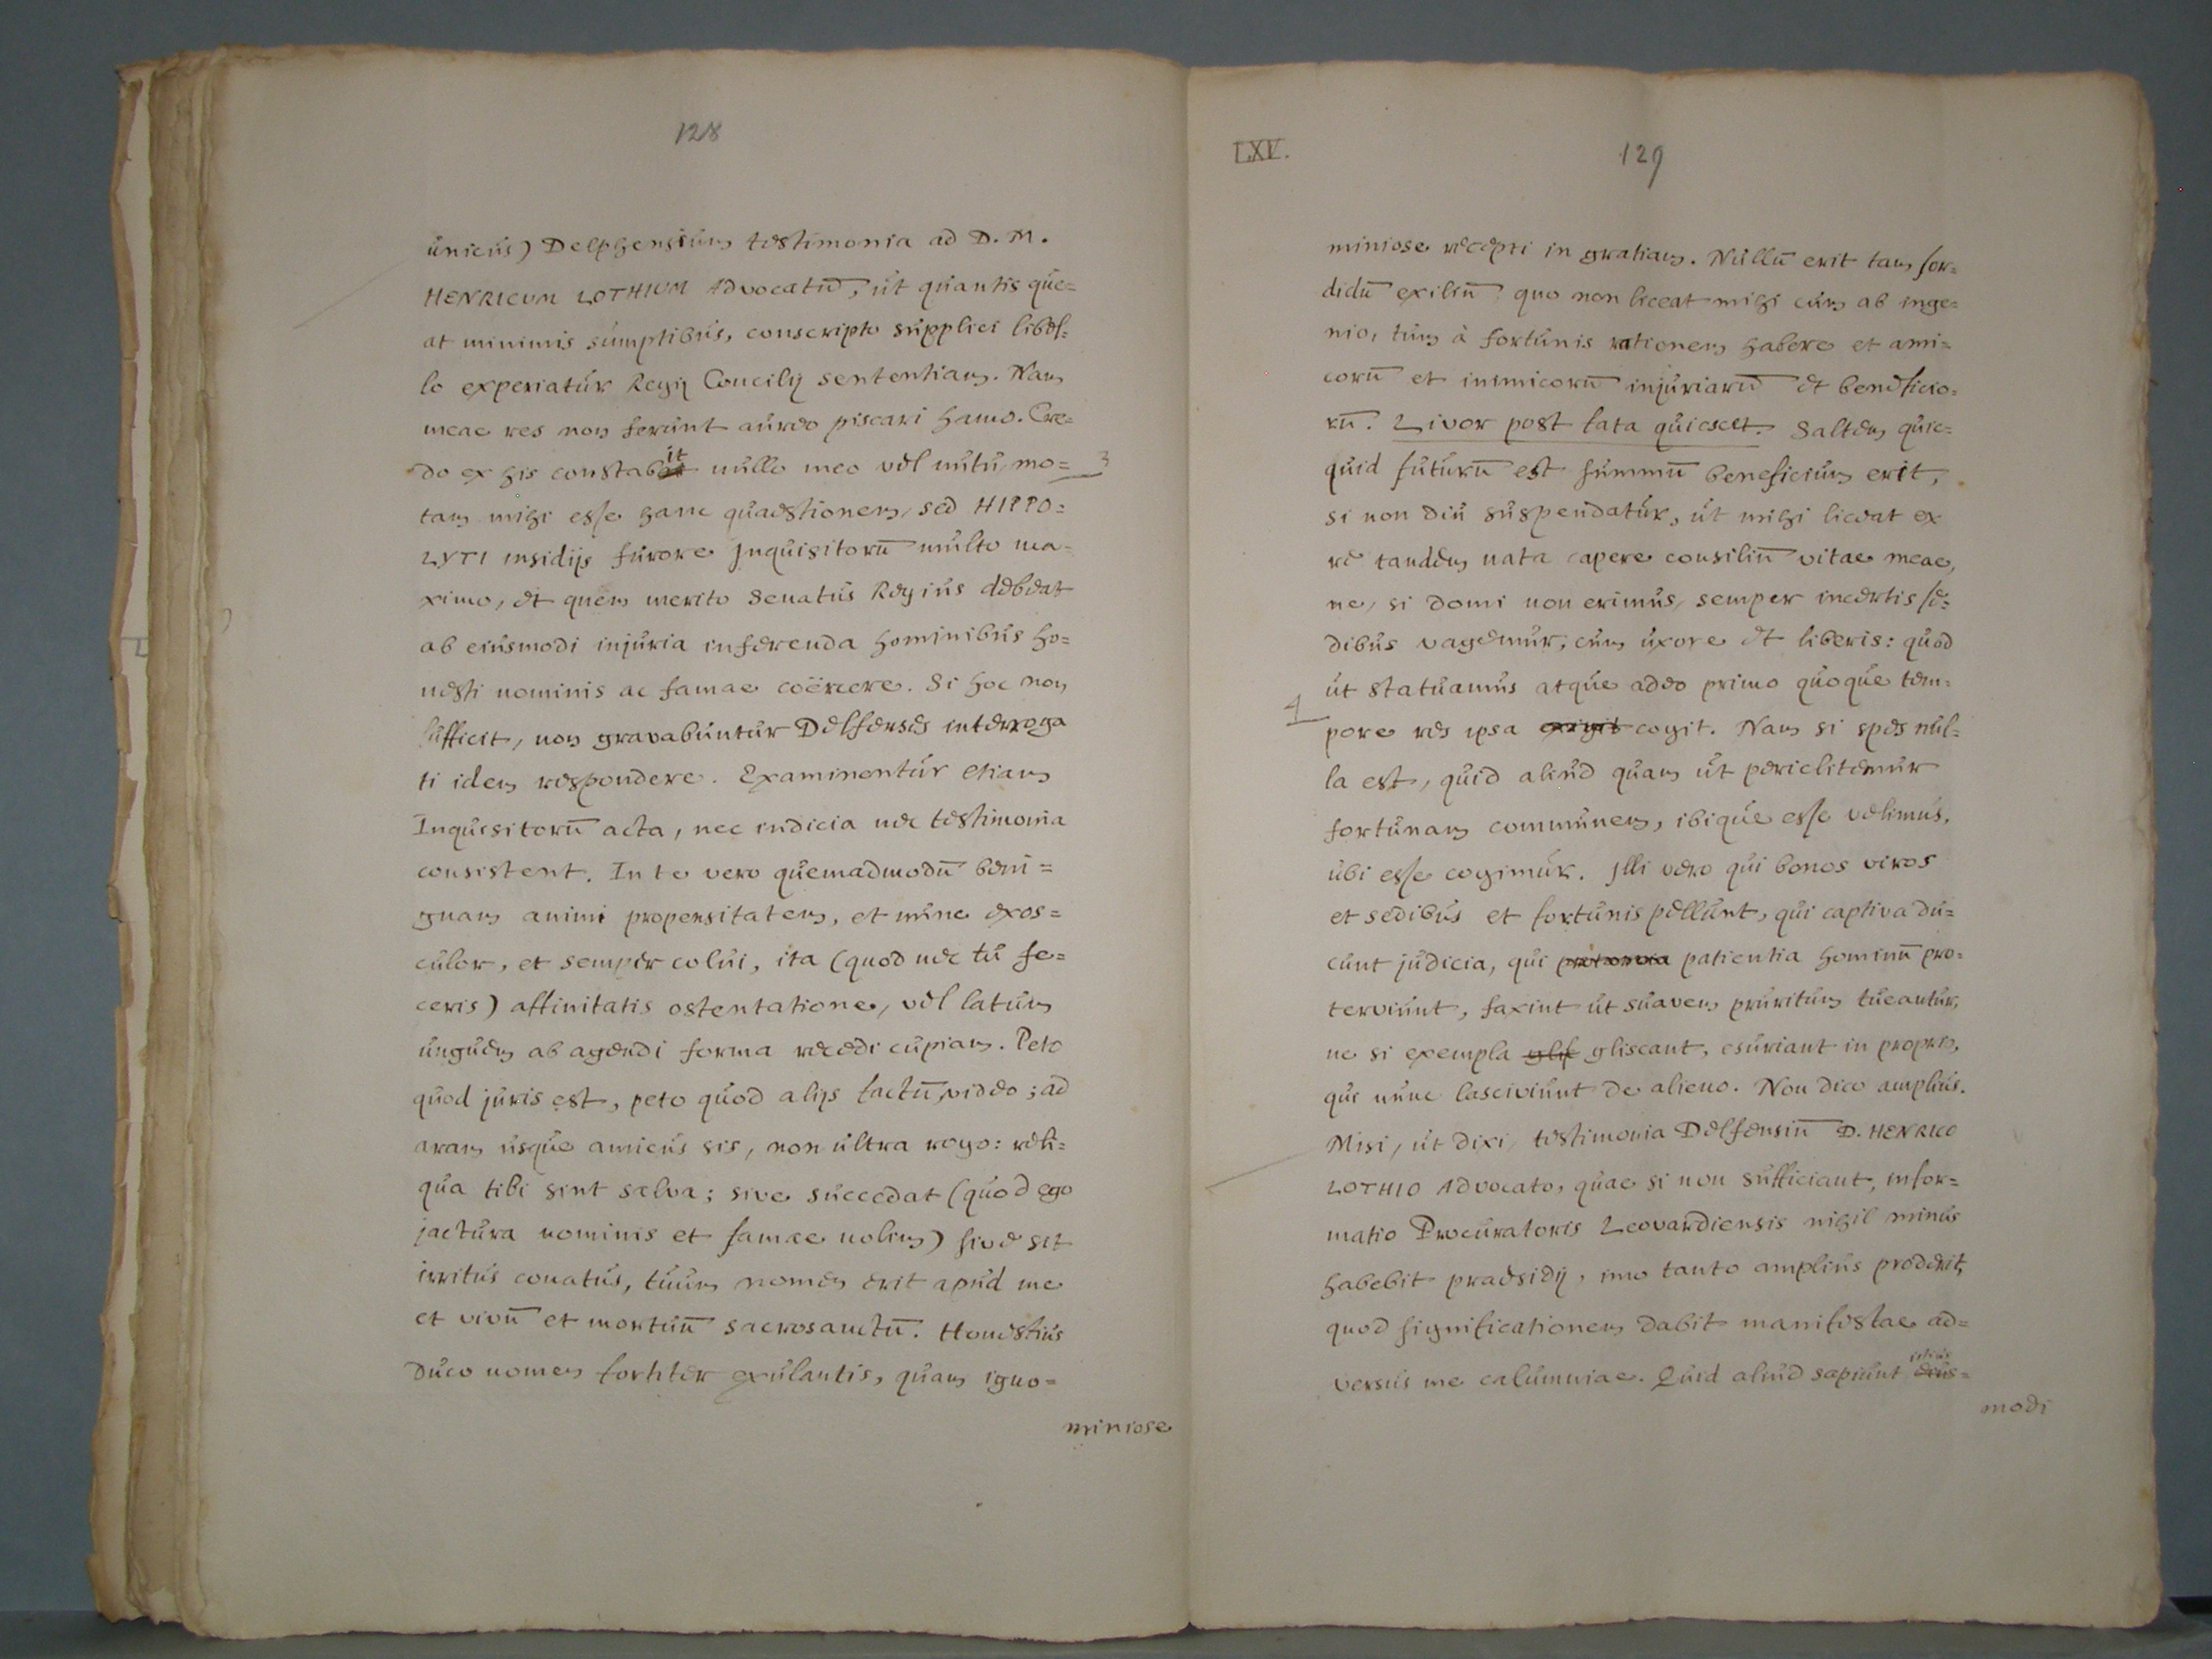 128
unicus) Delphensium testimonia ad D. M.
HENRICUM LOTHIUM Advocatū, ut quantis que=
at minimis sumptibus, conscripto supplici libel=
lo experiatur Regij Concilij sententiam. Nam
meae res non ferunt aureo piscari hamo. Cre=
do ex his constabit nullo meo vel nutu, mo= 3
tam mihi esse hanc quaestionem, sed HIPPO=
LYTI insidijs furore Inquisitorū multo ma=
ximo, et quem merito Senatus Regius debeat
ab eiusmodi injuria inferenda hominibus ho=
nesti nominis ac famae coërcere. Si hoc non
sufficit, non gravabuntur Delfenses interroga
ti idem respondere. Examinentur etiam
Inquisitorū acta, nec indicia nec testimonia
consistent. In te vero quemadmodū beni=
gnam animi propensitatem, et nunc exos=
culor, et semper colui, ita (quod nec tu fe=
ceris) affinitatis ostentatione, vel latum
unguem ab agendi forma recedi cupiam. Peto
quod juris est, peto quod alijs factū, video; ad
aram usque amicus sis, non ultra rogo: reli=
qua tibi sint salva; sive succedat (quod ego
jactura nominis et famae nolim) sive sit
irritus conatus, tuum nomen erit apud me
et vivū et mortuū sacrosanctū. Honestius
duco nomen fortiter exulantis, quam igno=
miniose
LXV.
129
miniose recepti in gratiam. Nullū erit tam sor=
didū exiliū quo non liceat mihi cum ab inge=
nio, tum à fortunis rationem habere et ami=
corū et inimicorū injuriarū et beneficio=
rū. Livor post fata quiescet. Saltem quic=
quid futurū est summū beneficium erit,
si non diu suspendatur, ut mihi liceat ex
re tandem nata capere consiliū vitae meae,
ne, si domi non erimus, semper incertis se=
dibus vagemur, cum uxore et liberis: quod
ut statuamus atque adeo primo quoque tem=
4 pore res ipsa exigit cogit. Nam si spes nul=
la est, quid aliud quam ut periclitemur
fortunam communem, ibique esse velimus,
ubi esse cogimur. Illi vero qui bonos viros
et sedibus et fortunis pellunt, qui captiva du=
cunt judicia, qui patientia hominū pro=
terviunt, faxint ut suavem pruritum tueantur,
ne si exempla glis gliscant, esuriant in proprio,
qui nunc lasciviunt de alieno. Non dico amplius.
Misi, ut dixi, testimonia Delfensiū D. HENRICO
LOTHIO Advocato, quae si non sufficiant, infor=
matio Procuratoris Leovardiensis nihil minus
habebit praesidij, imo tanto amplius proderit,
quod significationem dabit manifestae ad=
versus me calumniae. Quid aliud sapiunt istius eius=
modi